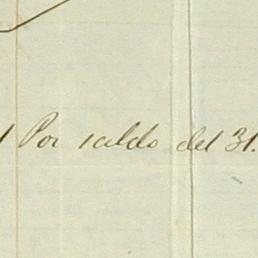 Por saldo del 31.